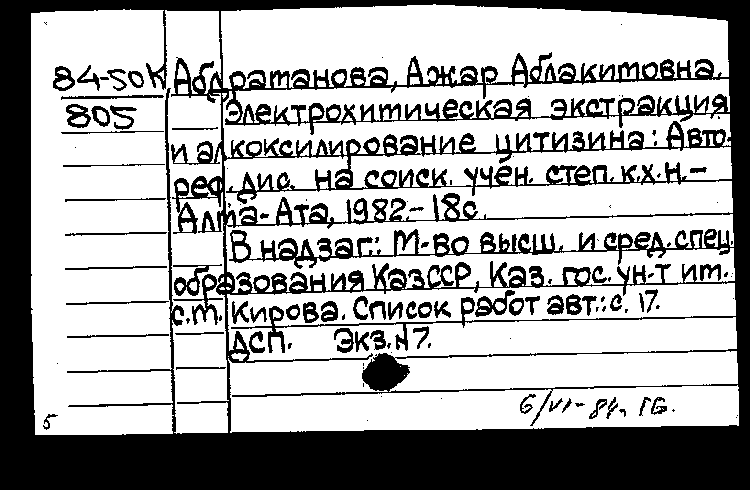 84-50К Абдраманова, Ажар Аблакимовна.
805 Электрохимическая экстракция
и алкоксилирование цитизина: Авто-
реф. дис. на соиск. учён. степ. к.х.н.-
Алма-Ата, 1982.-18с.
В надзаг.: М-во высш. и сред. спец.
образования КазССР, Каз. гос. ун-т им.
С.М. Кирова. Список работ авт.: с. 17.
ДСП. Экз. №7.
6/VI-84г.
5